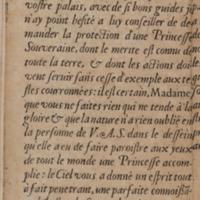 vostre palais, avec de si bons guides il
n'ay point hesité a luy conseiller de de
mander la protection d'une Princesse
Souveraine, dont le merite est connu de
toute la terre, & dont les actions doi-
vent servir sans cesse d'exemple aux te
stes couronnées: il est certain, Madame
que vous ne faites rien qui ne tende à la
gloire & que la nature n'a rien oublié en
la personne de V. A. S. dans le dessein
qu'elle a eu de faire paroistre aux yeux
de tout le monde une Princesse accom-
plie: le Ciel vous a donné un esprit tout
à fait penetrant, une parfaite connoissã